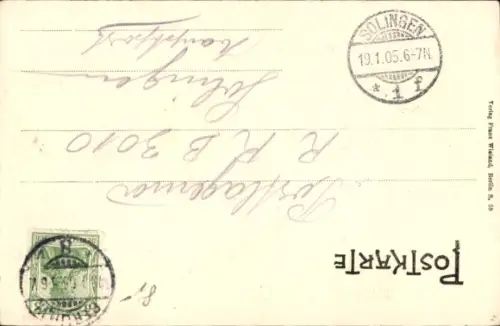 POSTKARTE
Postlagernd
R. R. B 3010
Solingen
Hauptpost
SOLINGEN
19.1.05.6-7N.
* 1 f
Verlag Franz Wieland, Berlin S. 59
8,-